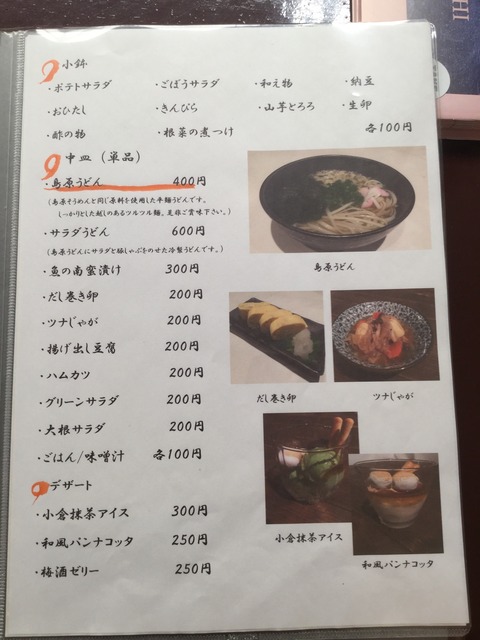 小鉢
・ポテトサラダ ・ごぼうサラダ ・和え物 ・納豆
・おひたし ・きんぴら ・山芋とろろ ・生卵
・酢の物 ・根菜の煮つけ 各100円
中皿（単品）
・島原うどん 400円
（島原そうめんと同じ原料を使用した半麺うどんです。
しっかりとした越しのあるツルツル麺。是非ご賞味下さい。）
・サラダうどん 600円
（島原うどんにサラダと豚しゃぶをのせた冷製うどんです。）
・魚の南蛮漬け 300円
・だし巻き卵 200円
・ツナじゃが 200円
・揚げ出し豆腐 200円
・ハムカツ 200円
・グリーンサラダ 200円
・大根サラダ 200円
・ごはん/味噌汁 各100円
島原うどん
だし巻き卵
ツナじゃが
デザート
・小倉抹茶アイス 300円
・和風パンナコッタ 250円
・梅酒ゼリー 250円
小倉抹茶アイス
和風パンナコッタ